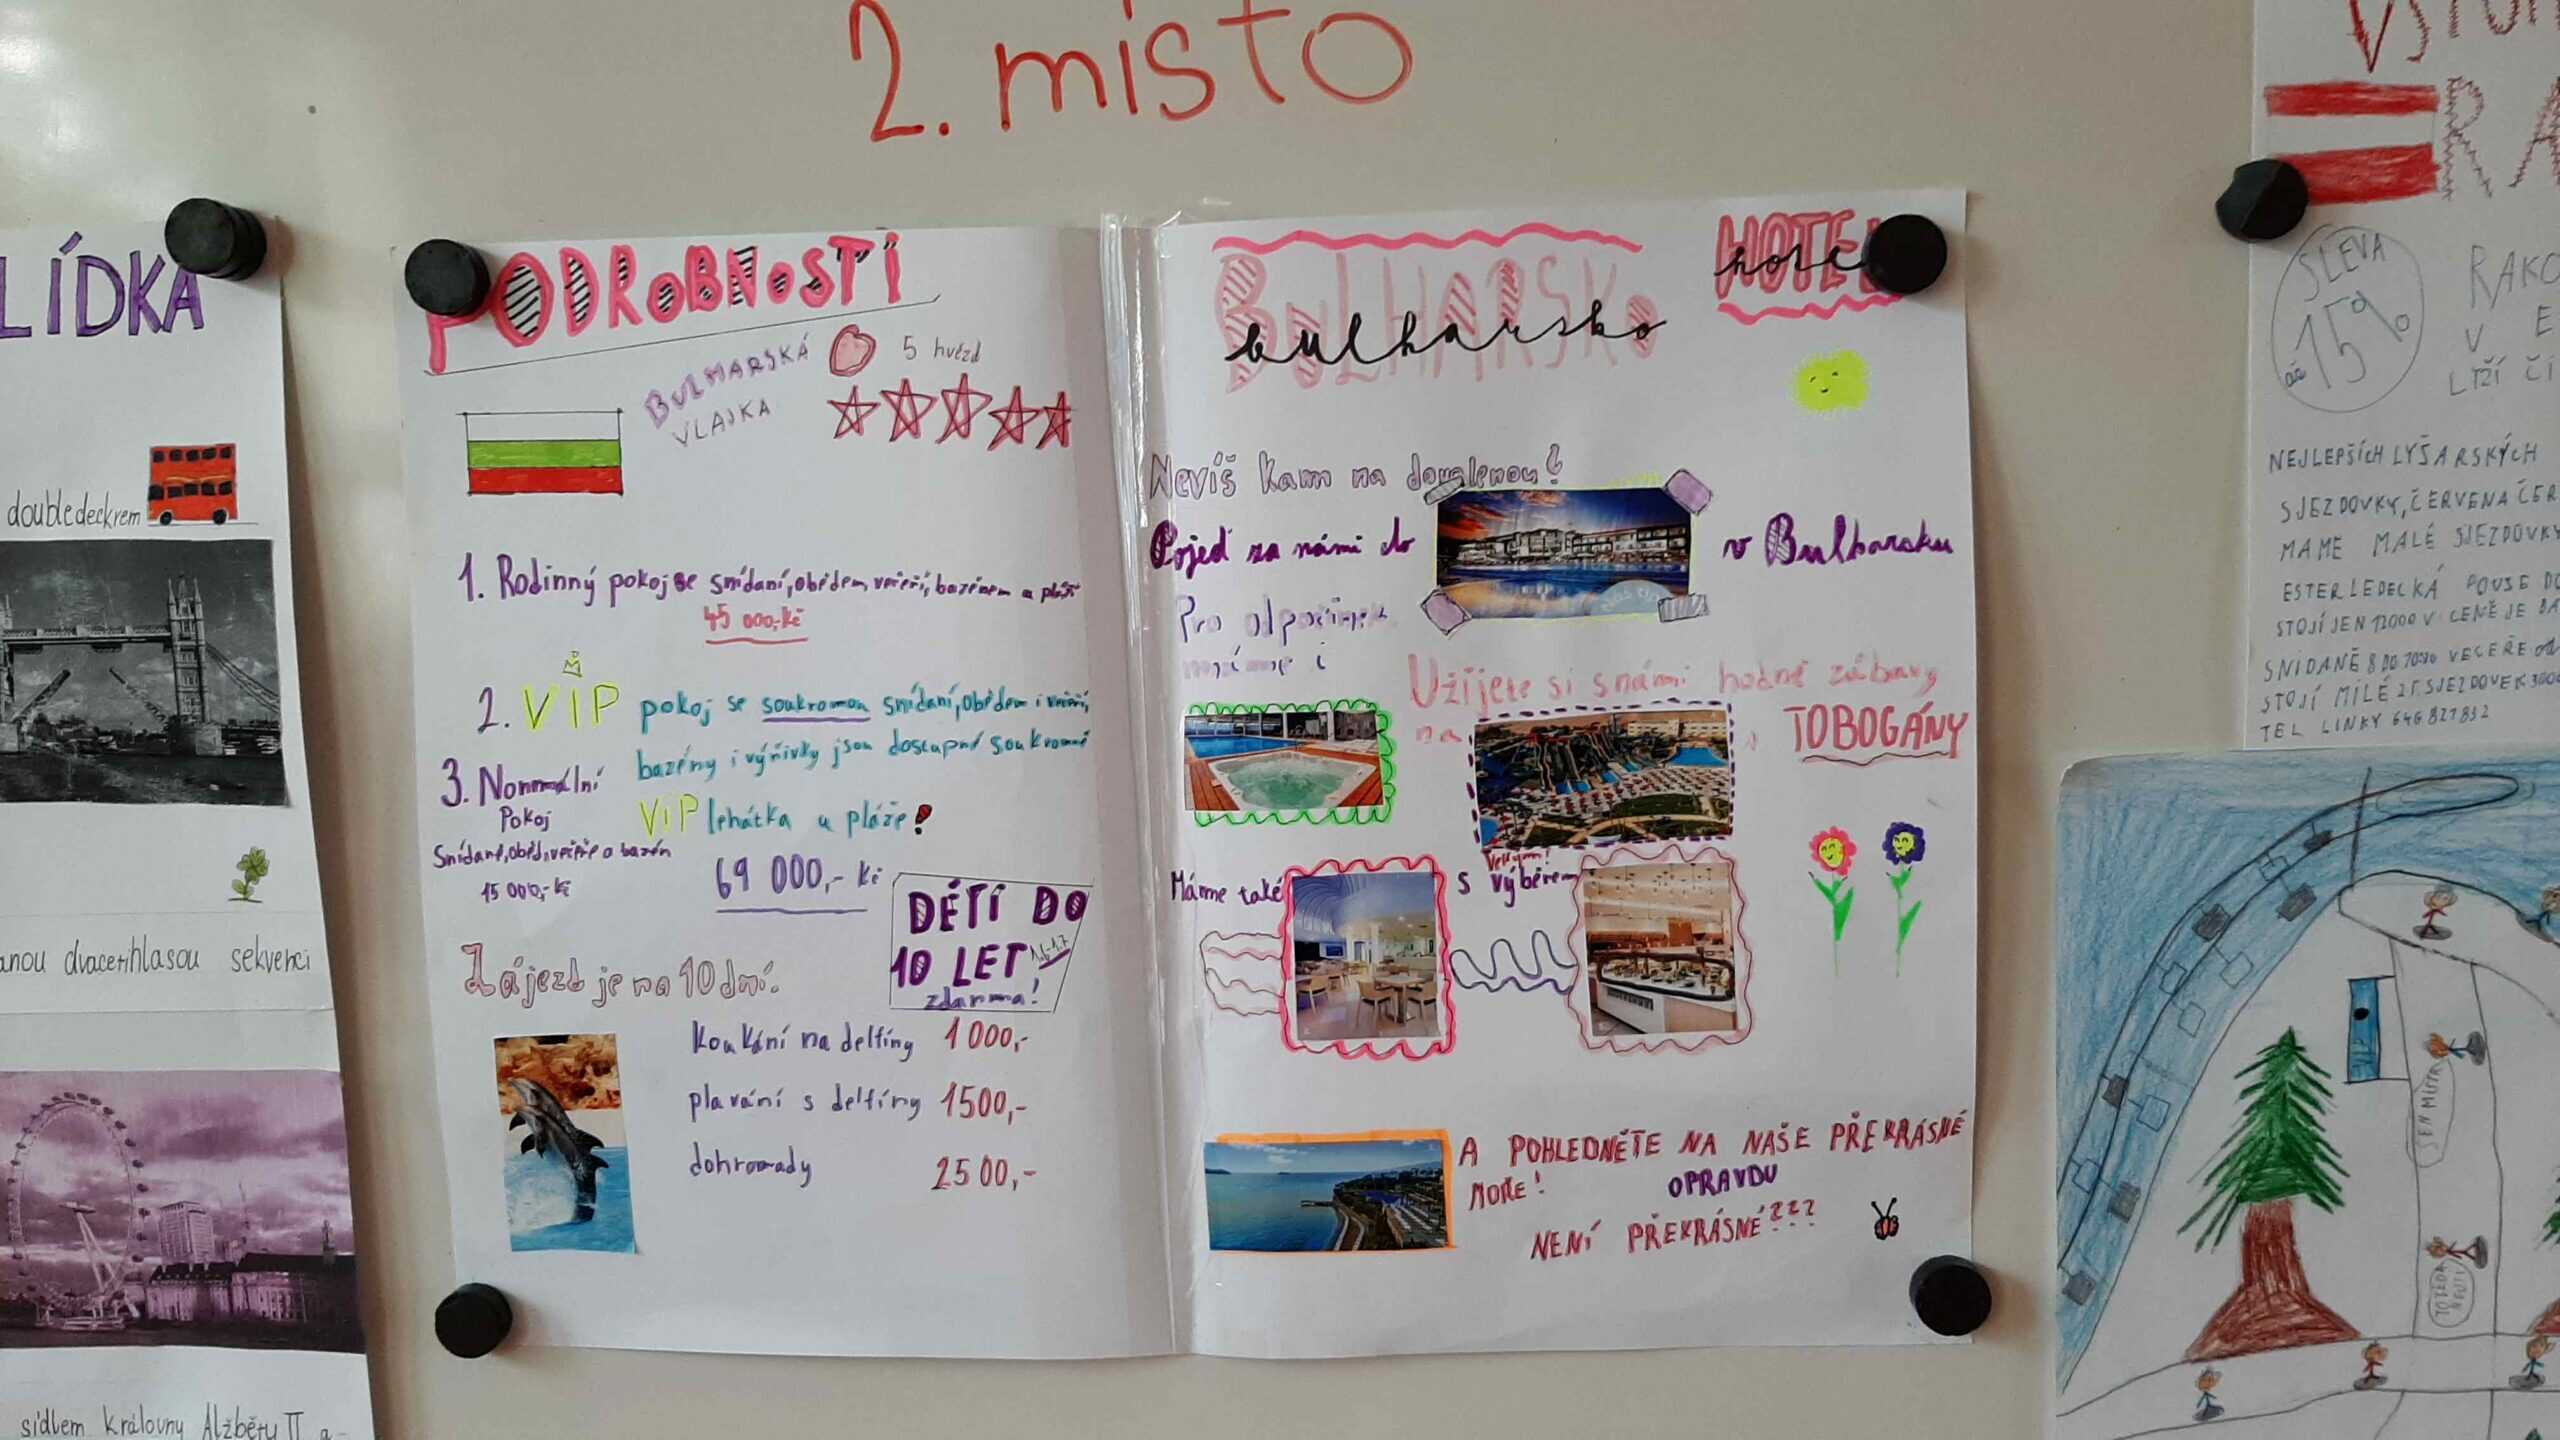 2. místo
LÍDKA
doubledeckrem
anou dvacetihlasou sekvencí
sídlem královny Alžběty II a-
PODROBNOSTI
BULHARSKÁ
VLAJKA
5 hvězd
1. Rodinný pokoj se snídaní, obědem, večeří, bazénem a pláží
45 000,-Kč
2. VIP pokoj se soukromou snídaní, obědem i večeří,
bazény i výřivky jsou dostupné soukromně
VIP lehátka u pláže!
69 000,- Kč
3. Normální
Pokoj
Snídaně, oběd, večeře a bazén
15 000,-Kč
DĚTI DO
10 LET
zdarma!
Zájezd je na 10 dní.
koukání na delfíny 1 000,-
plavání s delfíny 1500,-
dohromady 2500,-
BULHARSKO
bulharsko
HOTEL
hotel
Nevíš kam na dovolenou?
Pojeď za námi do v Bulharsku
Pro odpočinek
máme i
Užijete si s námi hodně zábavy
na
TOBOGÁNY
Máme také s výběrem
velkým!
A POHLEDNĚTE NA NAŠE PŘEKRÁSNÉ
MOŘE!
OPRAVDU
NENÍ PŘEKRÁSNÉ???
SLEVA
až 15%
RAKO
V E
LYŽÍ ČI
NEJLEPŠÍCH LYŠARSKÝCH
SJEZDOVKY, ČERVENA ČER
MAME MALÉ SJEZDOVKY
ESTER LEDECKÁ POUSE DO
STOJÍ JEN 12000 V CENĚ JE
SNIDANĚ 8 DO VECEŘE od
STOJÍ MILÉ
TEL LINKY 646 827 832
SEN MISTR